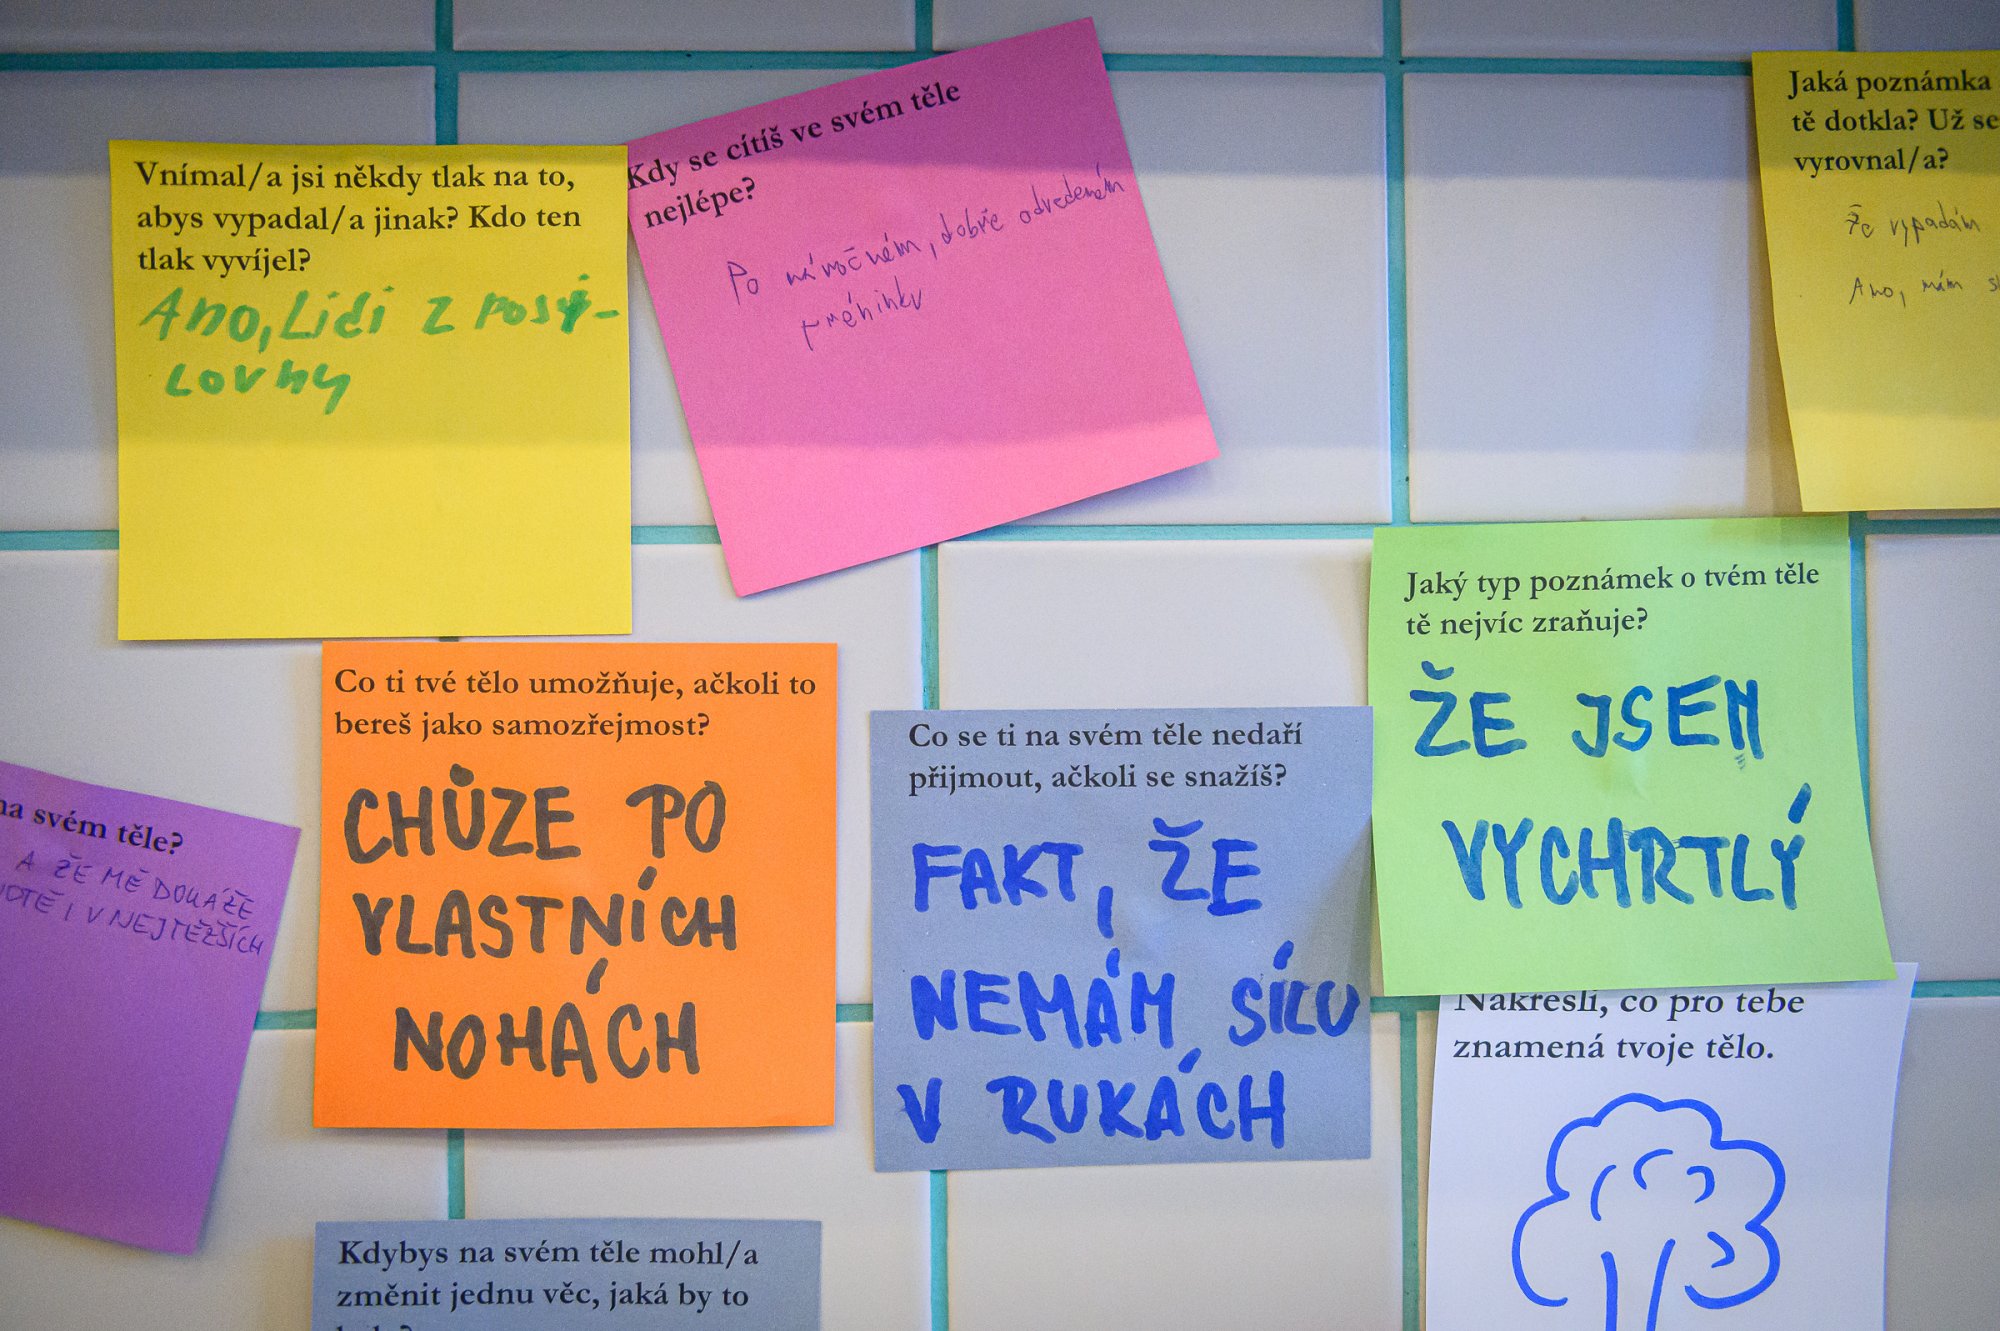 Vnímal/a jsi někdy tlak na to,
abys vypadal/a jinak? Kdo ten
tlak vyvíjel?
Ano, Lidi z posi-
lovny
Kdy se cítíš ve svém těle
nejlépe?
Po náročném, dobře odvedeném
tréninku
Jaká poznámka
tě dotkla? Už se
vyrovnal/a?
Že vypadám
Ano, mám
Jaký typ poznámek o tvém těle
tě nejvíc zraňuje?
ŽE JSEM
VYCHRTLÝ
Co ti tvé tělo umožňuje, ačkoli to
bereš jako samozřejmost?
CHŮZE PO
VLASTNÍCH
NOHÁCH
Co se ti na svém těle nedaří
přijmout, ačkoli se snažíš?
FAKT, ŽE
NEMÁM SÍLU
V RUKÁCH
na svém těle?
A ŽE MĚ DOKÁŽE
I V NEJTĚŽŠÍCH
Nakresli, co pro tebe
znamená tvoje tělo.
Kdybys na svém těle mohl/a
změnit jednu věc, jaká by to